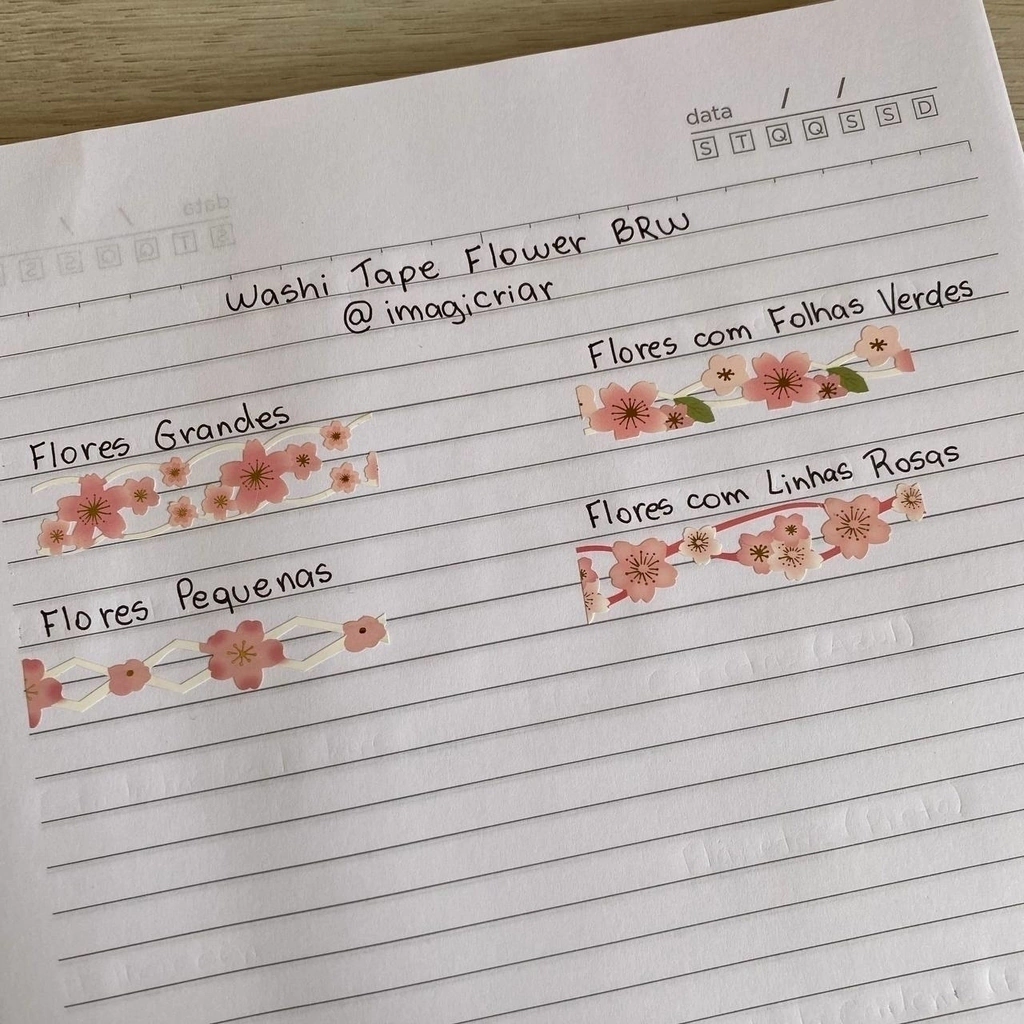 data / /
S T Q Q S S D
Washi Tape Flower BRW
@imagicriar
Flores com Folhas Verdes
Flores Grandes
Flores com Linhas Rosas
Flores Pequenas